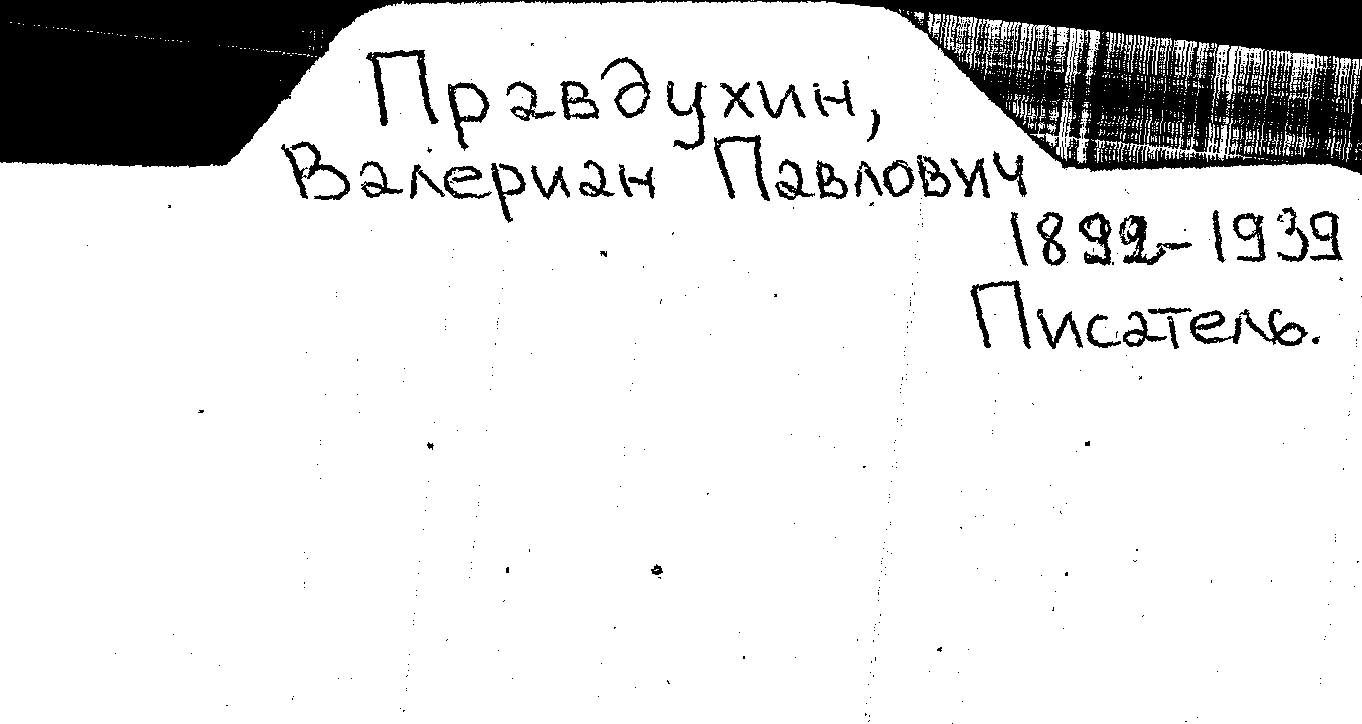 Правдухин,
Валериан Павлович
1892-1939
Писатель.